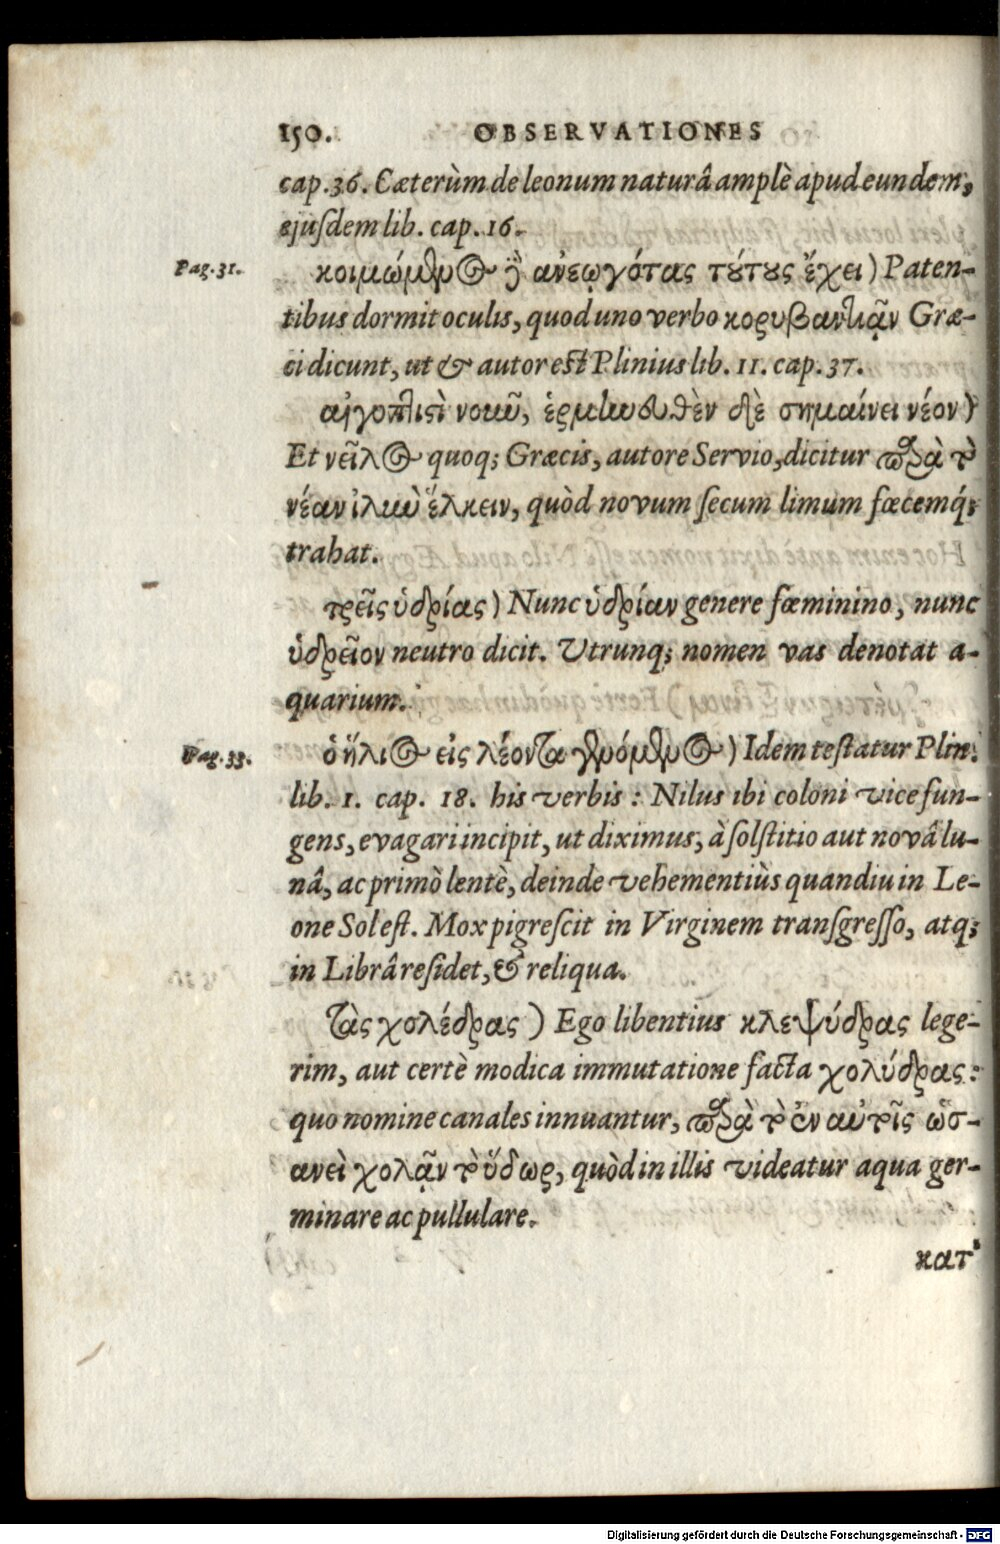 150. OBSERVATIONES
cap. 36. Cæterùm de leonum naturâ amplè apud eundem,
ejuſdem lib. cap. 16.
Pag. 31. κοιμώμενος ἢ ἀνεῳγότας τούτους ἔχει) Paten-
tibus dormit oculis, quod uno verbo κορυβαντιᾷν Græ-
ci dicunt, ut & autor eſt Plinius lib. 11. cap. 37.
αἰγυπτιστὶ νουῦ, ἑρμηνευθὲν δὲ σημαίνει νέον)
Et νεῖλος quoq; Græcis, autore Servio, dicitur παρὰ τὸ
νέαν ἰλὺν ἕλκειν, quòd novum ſecum limum fæcemq́;
trahat.
τρεῖς ὑδρίας) Nunc ὑδρίαν genere fœminino, nunc
ὑδρεῖον neutro dicit. Utrunq; nomen vas denotat a-
quarium.
Pag. 33. ὁ ἥλιος εἰς λέοντα γενόμενος) Idem teſtatur Plin.
lib. 1. cap. 18. his verbis: Nilus ibi coloni vice fun-
gens, evagari incipit, ut diximus, à ſolſtitio aut novâ lu-
nâ, ac primò lentè, deinde vehementiùs quandiu in Le-
one Sol eſt. Mox pigreſcit in Virginem transgreſſo, atq;
in Librâ reſidet, & reliqua.
τὰς χολέδρας) Ego libentius κλεψύδρας lege-
rim, aut certè modica immutatione facta χολύδρας:
quo nomine canales innuantur, παρὰ τὸ ἐν αὐτοῖς ὡσ-
ανεὶ χολᾷν τὸ ὕδωρ, quòd in illis videatur aqua ger-
minare ac pullulare.
κατ'
Digitalisierung gefördert durch die Deutsche Forschungsgemeinschaft - DFG